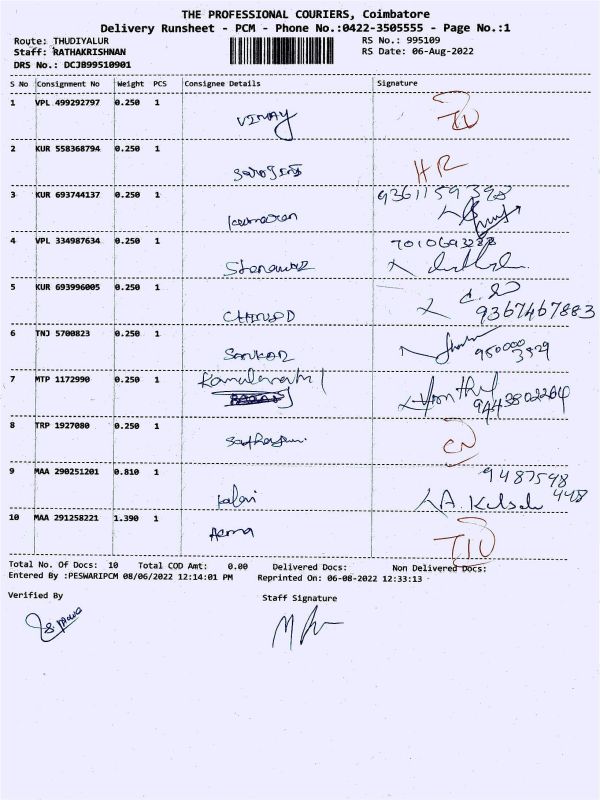 THE PROFESSIONAL COURIERS, Coimbatore
Delivery Runsheet - PCM - Phone No.:0422-3505555 - Page No.:1
Route: THUDIYALUR RS No.: 995109
Staff: RATHAKRISHNAN RS Date: 06-Aug-2022
DRS No.: DCJB99510901
S No Consignment No Weight PCS Consignee Details Signature
1 VPL 499292797 0.250 1 VINAY
2 KUR 558368794 0.250 1 HR
9361159398
3 KUR 693744137 0.250 1
4 VPL 334987634 0.250 1
5 KUR 693996005 0.250 1
9367467883
6 TNJ 5700823 0.250 1 SANKAR
7 MTP 1172990 0.250 1
9443802264
8 TRP 1927080 0.250 1
9487598
448
9 MAA 290251201 0.810 1
10 MAA 291258221 1.390 1
Total No. Of Docs: 10 Total COD Amt: 0.00 Delivered Docs: Non Delivered Docs:
Entered By :PESWARIPCM 08/06/2022 12:14:01 PM Reprinted On: 06-08-2022 12:33:13
Verified By Staff Signature